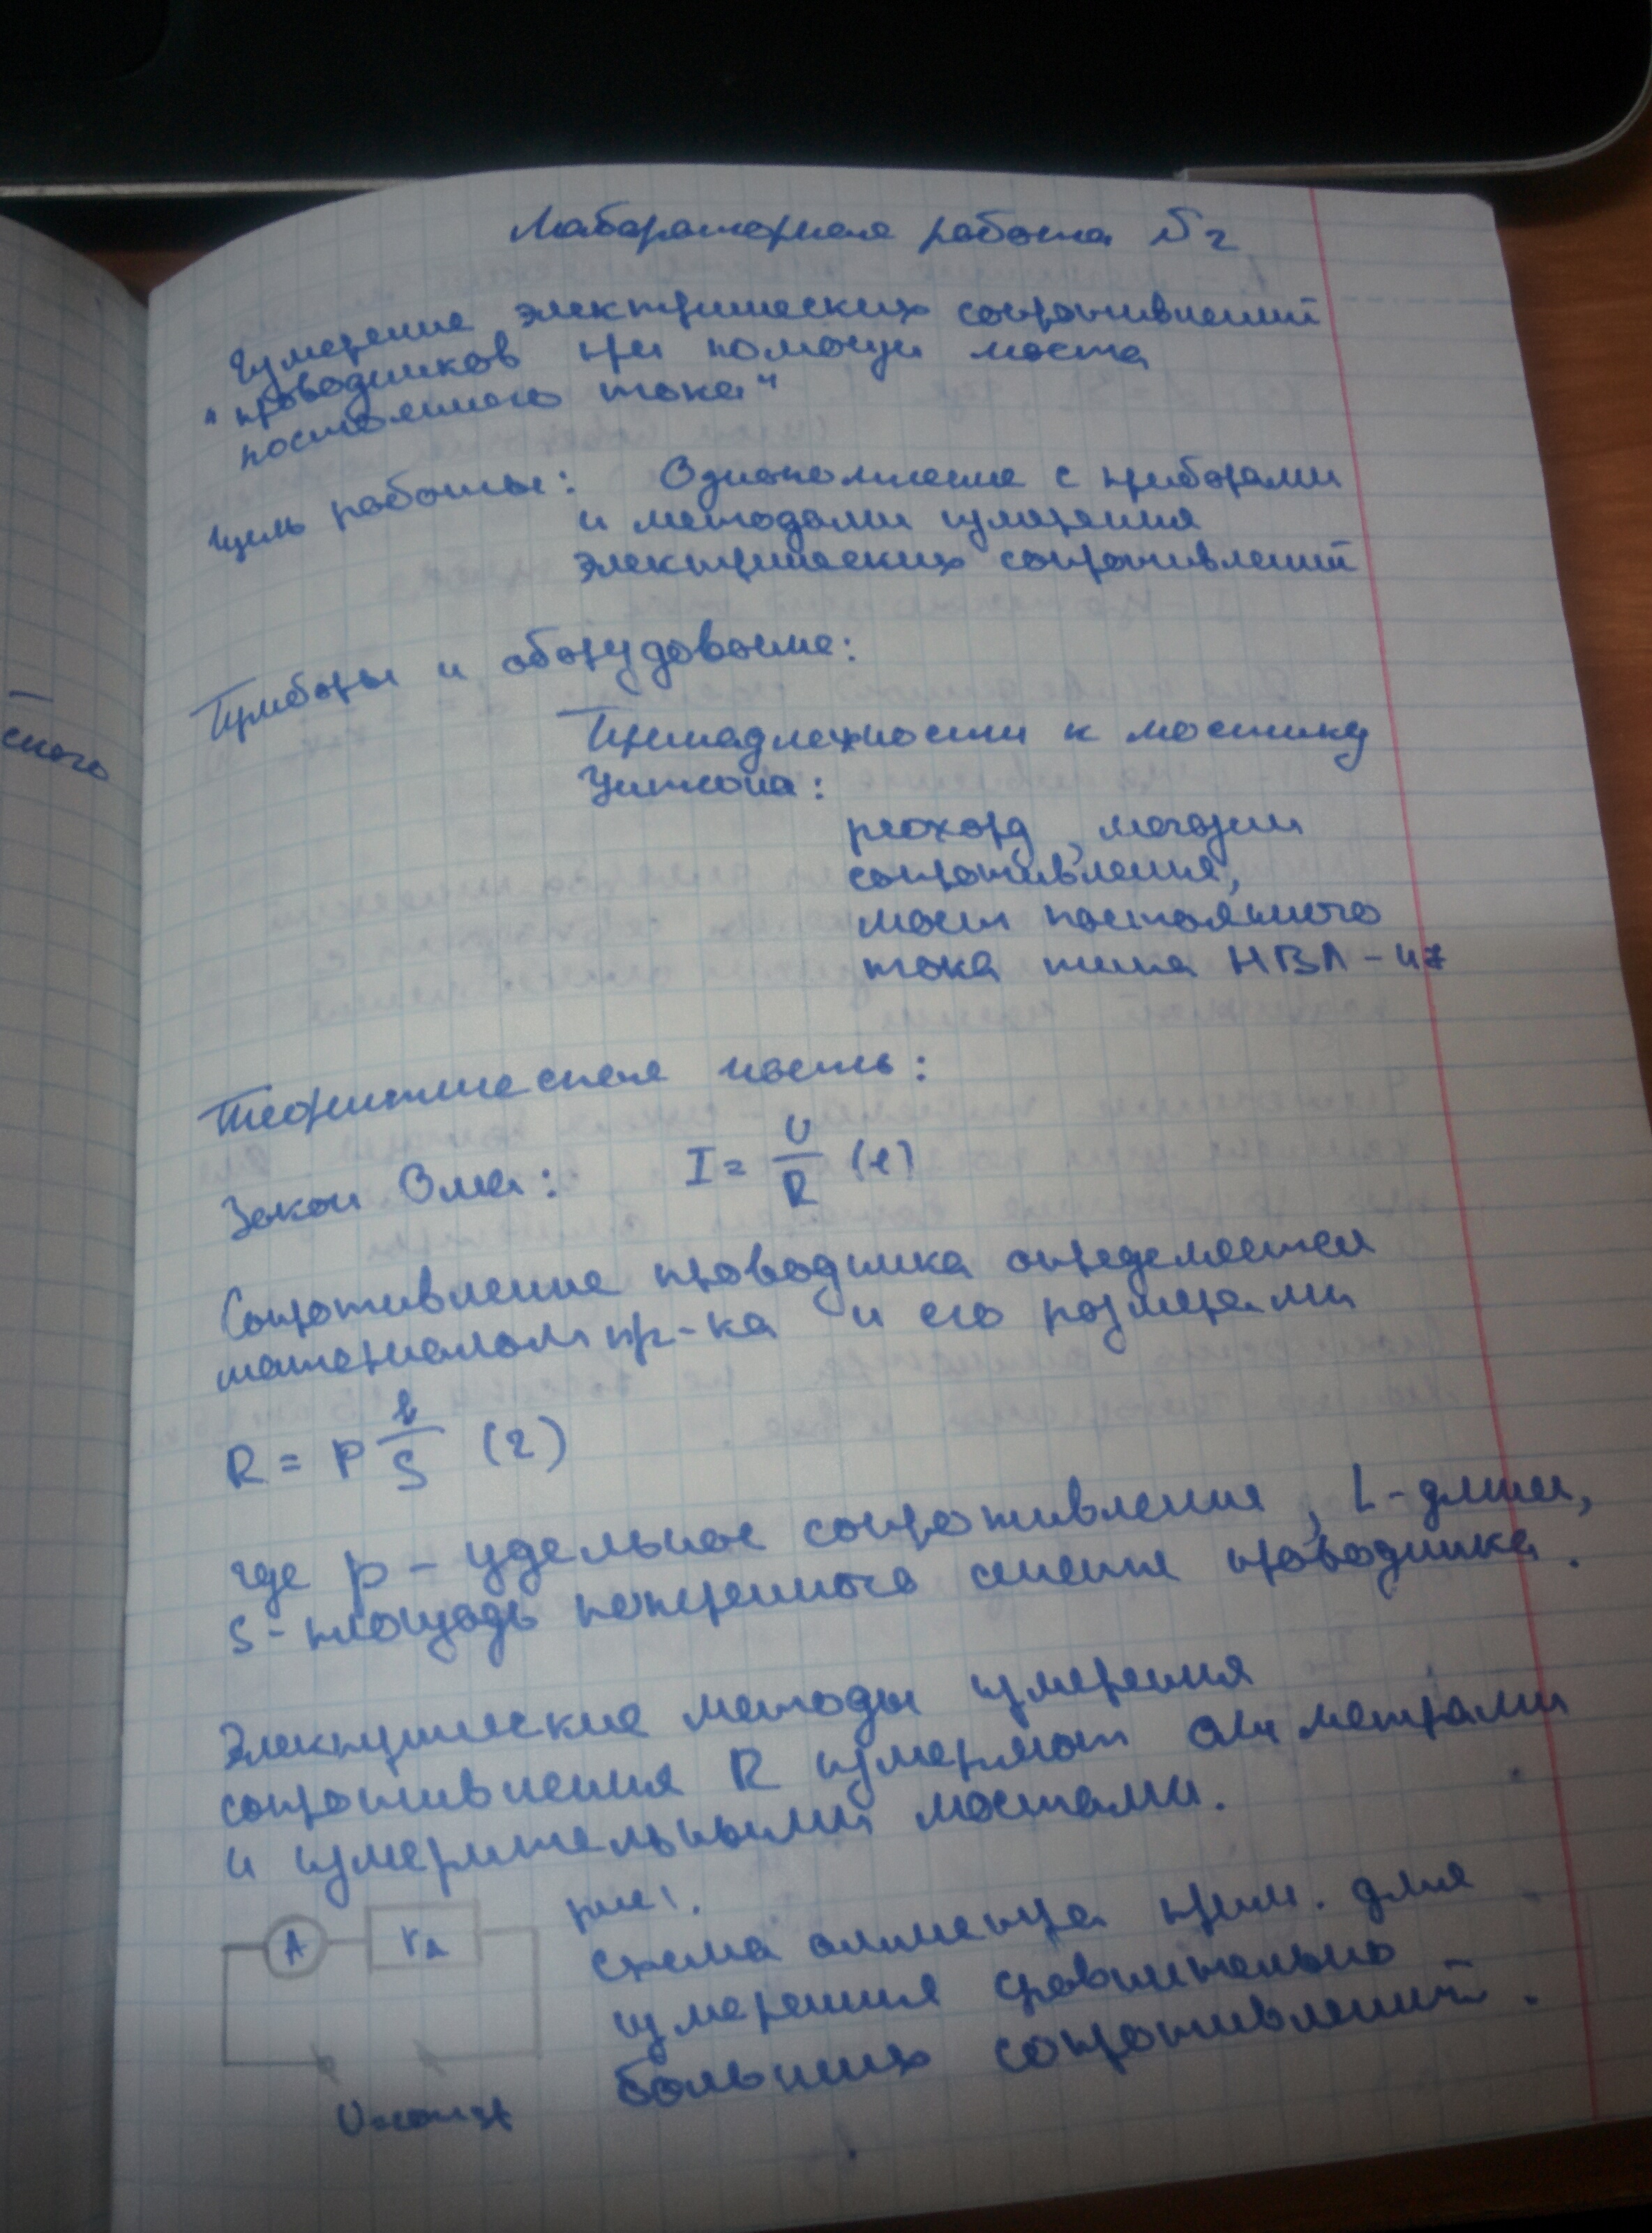 Лабораторная работа №2
Измерение электрических сопротивлений
"проводников при помощи моста
постоянного тока"
Цель работы: Ознакомление с приборами
и методами измерения
электрических сопротивлений
Приборы и оборудование:
Принадлежности к мостику
Уитсона:
реохорд, магазин
сопротивления,
мост постоянного
тока типа
Теоритическая часть:
Закон Ома: I = U/R (1)
Сопротивление проводника определяется
материалом пр-ка и его размерами
R = ρ l/S (2)
где ρ - удельное сопротивление, L - длина,
S - площадь поперечного сечения проводника.
Электрические методы измерения
сопротивления R измеряют омметрами
и измерительными мостами.
рис 1.
схема омметра прим. для
измерения сравнительно
больших сопротивлений.
A
U=const
ского